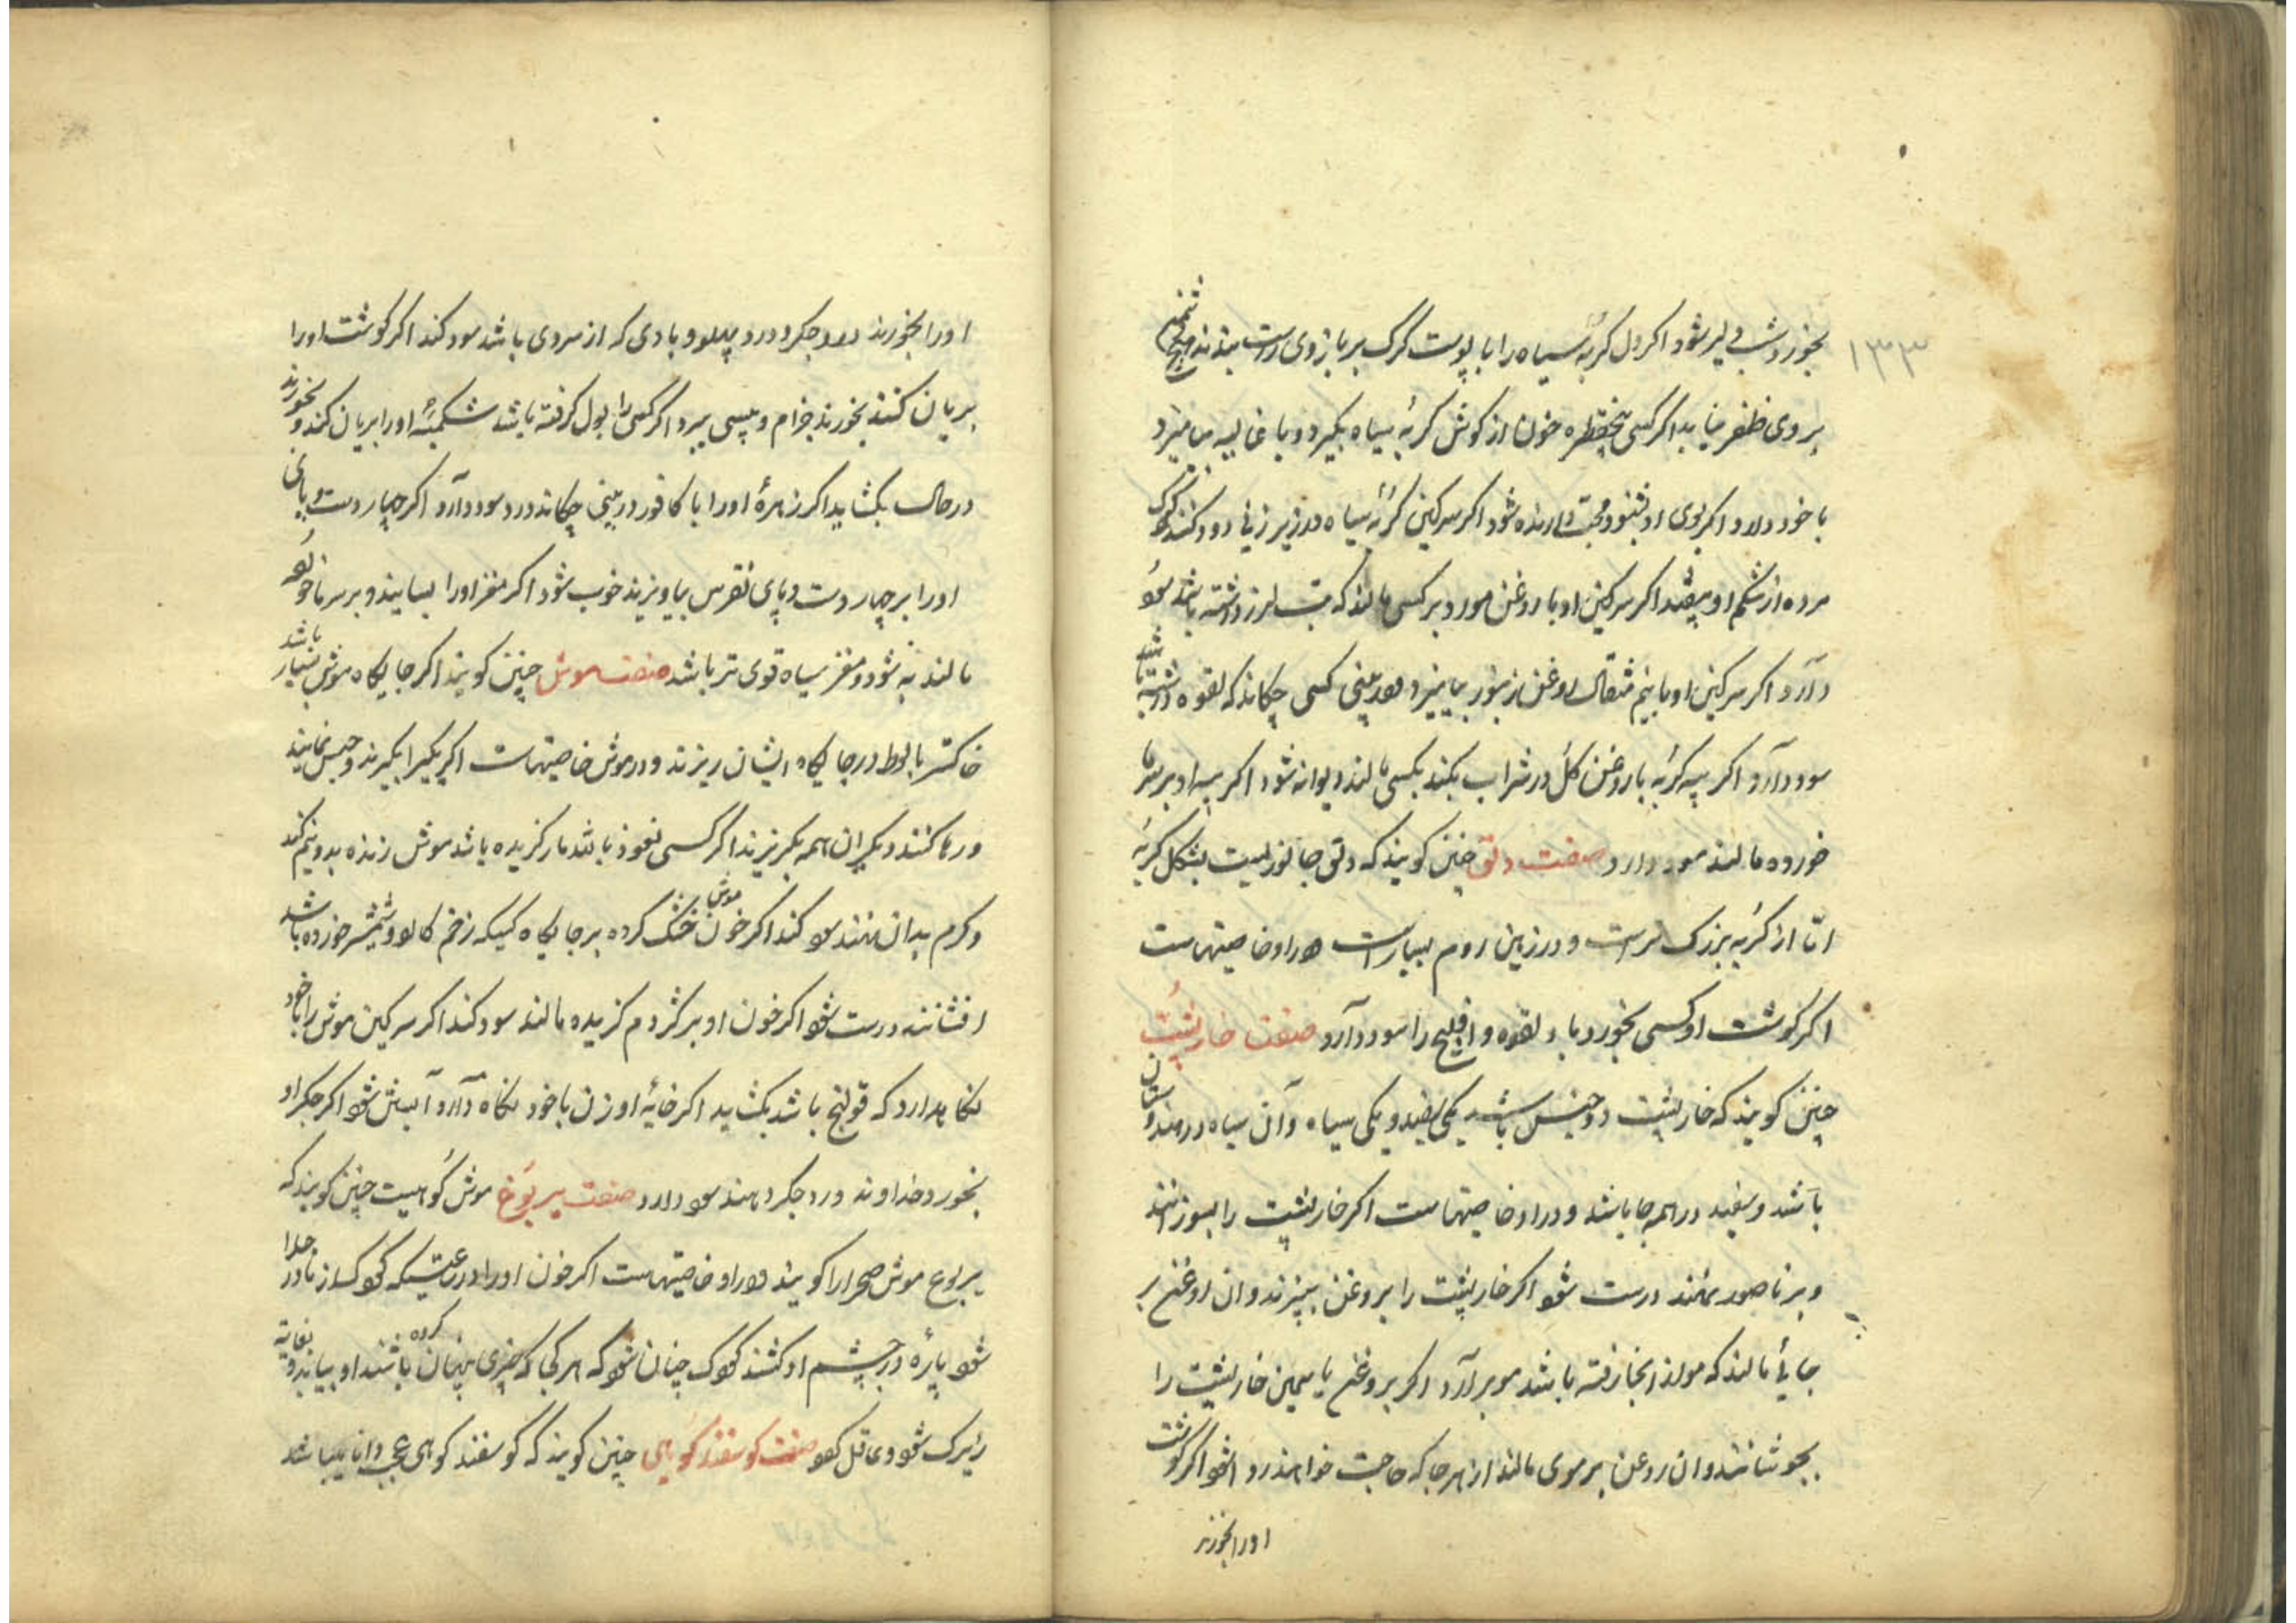 ۱۳۳
بخورد شب دلیر شود اکر دل کربه سیاه را با پوست کرک بر بازوی راست بندند هیچ
بروی ظفر نیابد اکر کسی پنجقطره خون از کوش کربهٔ سیاه بکیرد و با غالیه بیامیزد
با خود دارد اکر بوی او شنود محبت دارنده شود اکر سرکین کربهٔ سیاه در زیر زنی دود کنند کودک
مرده از شکم او بیفتد اکر سرکین او با روغن مورد بر کسی مالند که تب لرز داشته باشد سود
دارد اکر سرکین او با نیم مثقال روغن زنبور بیامیزد و در بینی کسی چکاند که لقوه داشته باشد
سود دارد اکر پیه کربه با روغن کل در شراب بکند بکسی مالند دیوانه شود اکر پیه او بر سرما
خورده مالند سود دارد صفت دلق چنین کویند که دلق جانوریست بشکل کربه
امّا از کربه بزرک تر است و در زمین روم بسیار است در او خاصیتهاست
اکر کوشت او کسی بخورد باد لقوه و افلیج را سود دارد صفت خارپشت
چنین کویند که خارپشت دو جنس باشد یکی سفید و یکی سیاه و آن سیاه در هندوستان
باشد و سفید در همه جا باشد و در او خاصیتهاست اکر خارپشت را بسوزانند
و بر ناصور نهند درست شود اکر خارپشت را بروغن بپزند و ان روغن بر
جایٔ مالند که مو از انجا رفته باشد مو برآرد اکر بروغن یاسمین خارپشت را
بجوشانند و ان روغن بر موی مالند از هر جا که حاجت خواهند روا شود اکر کوشت
اورا بخورند
اورا بخورند درد جکر و درد پهلو و بادی که از سردی باشد سود کند اکر کوشت اورا
بریان کنند بخورند جزام و پیسی ببرد اکر کسی را بول کرفته باشد شکمبهٔ اورا بریان کند و بخورند
در حال بکشاید اکر زهرهٔ اورا با کافور در بینی چکاند درد سود دارد اکر چهار دست و پای
اورا بر چهار دست و پای نقرس بیاویزند خوب شود اکر مغز اورا بسایند و بر سرماخورده
مالند به شود و مغز سیاه قوی تر باشد صفت موش چنین کویند اکر جایکاه موش بسیار باشد
خاکستر بالوط در جایکاه ایشان ریزند و در موش خاصیتهاست اکر یکی را بکیرند و حبس نمایند
و رها کنند دیکران همه بکریزند اکر کسی نعوذ باشد مار کزیده باشد موش زنده بدو نیم کند
و کرم بدان نهند سود کند اکر خون موش خشک کرده بر جایکاه کسیکه زخم کارد و شمشیر خورده باشد
افشانند درست شود اکر خون او بر کژدم کزیده مالند سود کند اکر سرکین موش را با خود
نکاهدارد که قولنج باشد بکشاید اکر خایهٔ او زن با خود نکاه دارد آبستن شود اکر جکر او
بخورد خداوند درد جکر دهند سود دارد صفت یربوع موش کوهیست چنین کویند که
یربوع موش صحرا را کویند و در او خاصیتهاست اکر خون اورا در وقتیکه کودک از مادر جدا
شود پارهٔ در چشم او کشند کودک چنان شود که هر کجا که چیزی پنهان کرده باشند او بیابد و بغایة
زیرک شود و عقل کود صفت کوسفند کوهی چنین کویند که کوسفند کوهی عجب دانا باشد